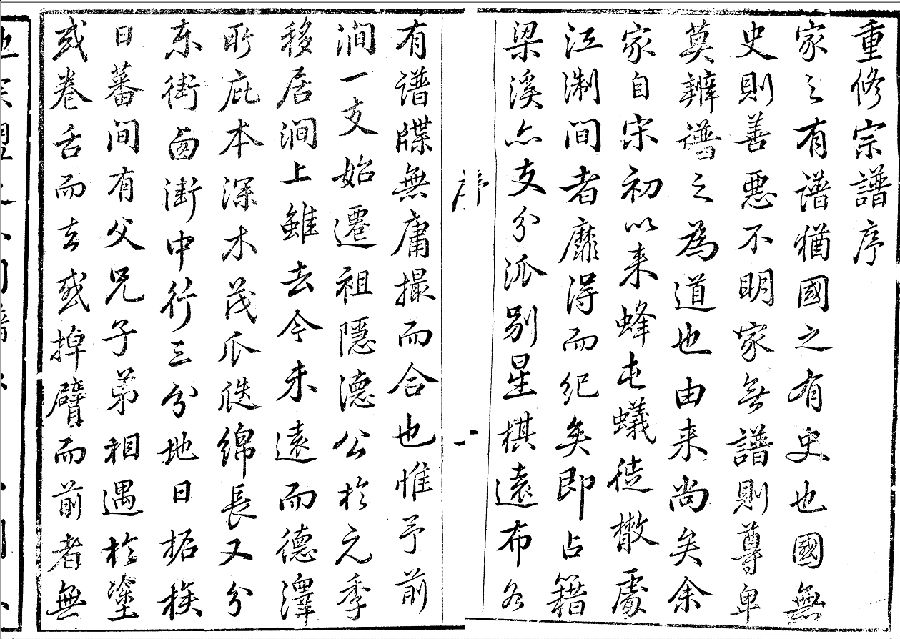 重修宗譜序
家之有谱猶國之有史也國無
史則善惡不明家無譜則尊卑
莫辨谱之為道也由来尚矣余
家自宋初以来蜂屯蟻徒散處
江淛間者靡得而纪矣即占籍
梁溪亦支分派别星棋遠布各
序
一
有谱牒無庸撮而合也惟予前
澗一支始遷祖隱德公於元季
移居澗上雖去今未遠而德澤
所庇本深木茂瓜瓞綿長又分
東街西街中行三分地日拓族
日蕃间有父兄子弟相遇於塗
或卷舌而去或掉臂而前者無